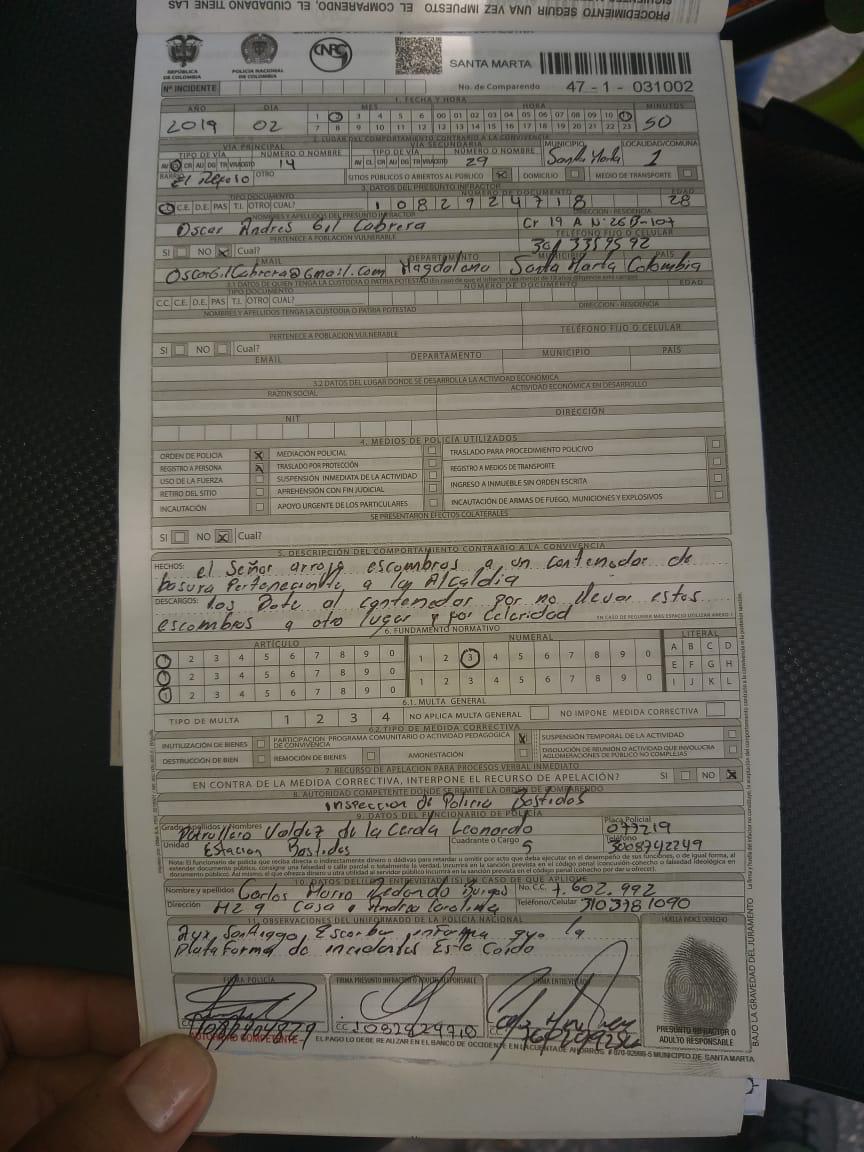 PROCEDIMIENTO SEGUIR UNA VEZ IMPUESTO EL COMPARENDO, EL CIUDADANO TIENE LAS
REPÚBLICA DE COLOMBIA
POLICÍA NACIONAL DE COLOMBIA
CNPC
SANTA MARTA
Nº INCIDENTE
No. de Comparendo 47 - 1 - 031002
1. FECHA Y HORA
AÑO DIA MES HORA MINUTOS
2019 02 50
1 3 4 5 6 00 01 02 03 04 05 06 07 08 09 10
7 8 9 10 11 12 12 13 14 15 16 17 18 19 20 21 22 23
2. LUGAR DEL COMPORTAMIENTO CONTRARIO A LA CONVIVENCIA
VIA PRINCIPAL VIA SECUNDARIA MUNICIPIO LOCALIDAD/COMUNA
TIPO DE VÍA NÚMERO O NOMBRE TIPO DE VÍA NÚMERO O NOMBRE
14 29 Santa Marta 1
BARRIO El Reposo OTRO SITIOS PÚBLICOS O ABIERTOS AL PÚBLICO X DOMICILIO MEDIO DE TRANSPORTE
3. DATOS DEL PRESUNTO INFRACTOR
TIPO DOCUMENTO NÚMERO DE DOCUMENTO EDAD
C.E. D.E. PAS T.I. OTRO CUAL? 1082924718 28
NOMBRES Y APELLIDOS DEL PRESUNTO INFRACTOR DIRECCIÓN - RESIDENCIA
Oscar Andres Gil Cabrera Cr 19 A N: 26B-107
PERTENECE A POBLACION VULNERABLE TELÉFONO FIJO O CELULAR
SI NO X Cual?
EMAIL DEPARTAMENTO MUNICIPIO PAÍS
OscarGilCabrera@Gmail.com Magdalena Santa Marta Colombia
3.1 DATOS DE QUIEN TENGA LA CUSTODIA O PATRIA POTESTAD
TIPO DOCUMENTO NÚMERO DE DOCUMENTO EDAD
C.C. C.E. D.E. PAS T.I. OTRO CUAL?
NOMBRES Y APELLIDOS TENGA LA CUSTODIA O PATRIA POTESTAD DIRECCIÓN - RESIDENCIA
PERTENECE A POBLACION VULNERABLE TELÉFONO FIJO O CELULAR
SI NO Cual?
EMAIL DEPARTAMENTO MUNICIPIO PAÍS
3.2 DATOS DEL LUGAR DONDE SE DESARROLLA LA ACTIVIDAD ECONÓMICA
RAZON SOCIAL ACTIVIDAD ECONÓMICA EN DESARROLLO
NIT DIRECCIÓN
4. MEDIOS DE POLICÍA UTILIZADOS
ORDEN DE POLICIA X MEDIACIÓN POLICIAL TRASLADO PARA PROCEDIMIENTO POLICIVO
REGISTRO A PERSONA X TRASLADO POR PROTECCIÓN REGISTRO A MEDIOS DE TRANSPORTE
USO DE LA FUERZA SUSPENSIÓN INMEDIATA DE LA ACTIVIDAD INGRESO A INMUEBLE SIN ORDEN ESCRITA
RETIRO DEL SITIO APREHENSIÓN CON FIN JUDICIAL INCAUTACIÓN DE ARMAS DE FUEGO, MUNICIONES Y EXPLOSIVOS
INCAUTACIÓN APOYO URGENTE DE LOS PARTICULARES
SE PRESENTARON EFECTOS COLATERALES
SI NO X Cual?
5. DESCRIPCIÓN DEL COMPORTAMIENTO CONTRARIO A LA CONVIVENCIA
HECHOS: el Señor arroja escombros a un contenedor de
basura Perteneciente a la Alcaldia
DESCARGOS: los Bote al contenedor por no llevar estos
escombros a otro lugar y por Celeridad
EN CASO DE REQUERIR MÁS ESPACIO UTILIZAR ANEXO 1
6. FUNDAMENTO NORMATIVO
ARTÍCULO NUMERAL LITERAL
1 2 3 4 5 6 7 8 9 0 1 2 3 4 5 6 7 8 9 0 A B C D
1 2 3 4 5 6 7 8 9 0 E F G H
1 2 3 4 5 6 7 8 9 0 1 2 3 4 5 6 7 8 9 0 I J K L
6.1. MULTA GENERAL
TIPO DE MULTA 1 2 3 4 NO APLICA MULTA GENERAL NO IMPONE MEDIDA CORRECTIVA
6.2. TIPO DE MEDIDA CORRECTIVA
INUTILIZACIÓN DE BIENES PARTICIPACIÓN PROGRAMA COMUNITARIO O ACTIVIDAD PEDAGÓGICA DE CONVIVENCIA X SUSPENSIÓN TEMPORAL DE LA ACTIVIDAD
DESTRUCCIÓN DE BIEN REMOCIÓN DE BIENES AMONESTACIÓN DISOLUCIÓN DE REUNIÓN O ACTIVIDAD QUE INVOLUCRA AGLOMERACIONES DE PÚBLICO NO COMPLEJAS
7. RECURSO DE APELACIÓN PARA PROCESOS VERBAL INMEDIATO
EN CONTRA DE LA MEDIDA CORRECTIVA, INTERPONE EL RECURSO DE APELACIÓN? SI NO X
8. AUTORIDAD COMPETENTE DONDE SE REMITE LA ORDEN DE COMPARENDO
inspeccion de Policia Bastidas
9. DATOS DEL FUNCIONARIO DE POLICÍA
Grado Apellidos y Nombres Patrullero Valdez de la Cerda Leonardo Placa Policial 077219
Unidad Estacion Bastidas Cuadrante o Cargo 5 Teléfono 3008742249
10. DATOS DEL(LOS) ENTREVISTADO (S) EN CASO DE QUE APLIQUE
Nombre y apellidos Carlos Mario Redondo Burgos No. C.C. 7.602.992
Dirección MZ 9 Casa 2 Andrea Carolina Teléfono/Celular 3103781090
11. OBSERVACIONES DEL UNIFORMADO DE LA POLICIA NACIONAL
Aux. Santiago Escobar informa que la
Plataforma de incidentes Esta Caido
HUELLA INDICE DERECHO
FIRMA POLICÍA FIRMA PRESUNTO INFRACTOR O ADULTO RESPONSABLE FIRMA ENTREVISTADO
CC 1082924718
PRESUNTO INFRACTOR O ADULTO RESPONSABLE
BAJO LA GRAVEDAD DEL JURAMENTO
AUTORIDAD COMPETENTE
EL PAGO LO DEBE REALIZAR EN EL BANCO DE OCCIDENTE EN LA CUENTA DE AHORROS # 870-02986-5 MUNICIPIO DE SANTA MARTA